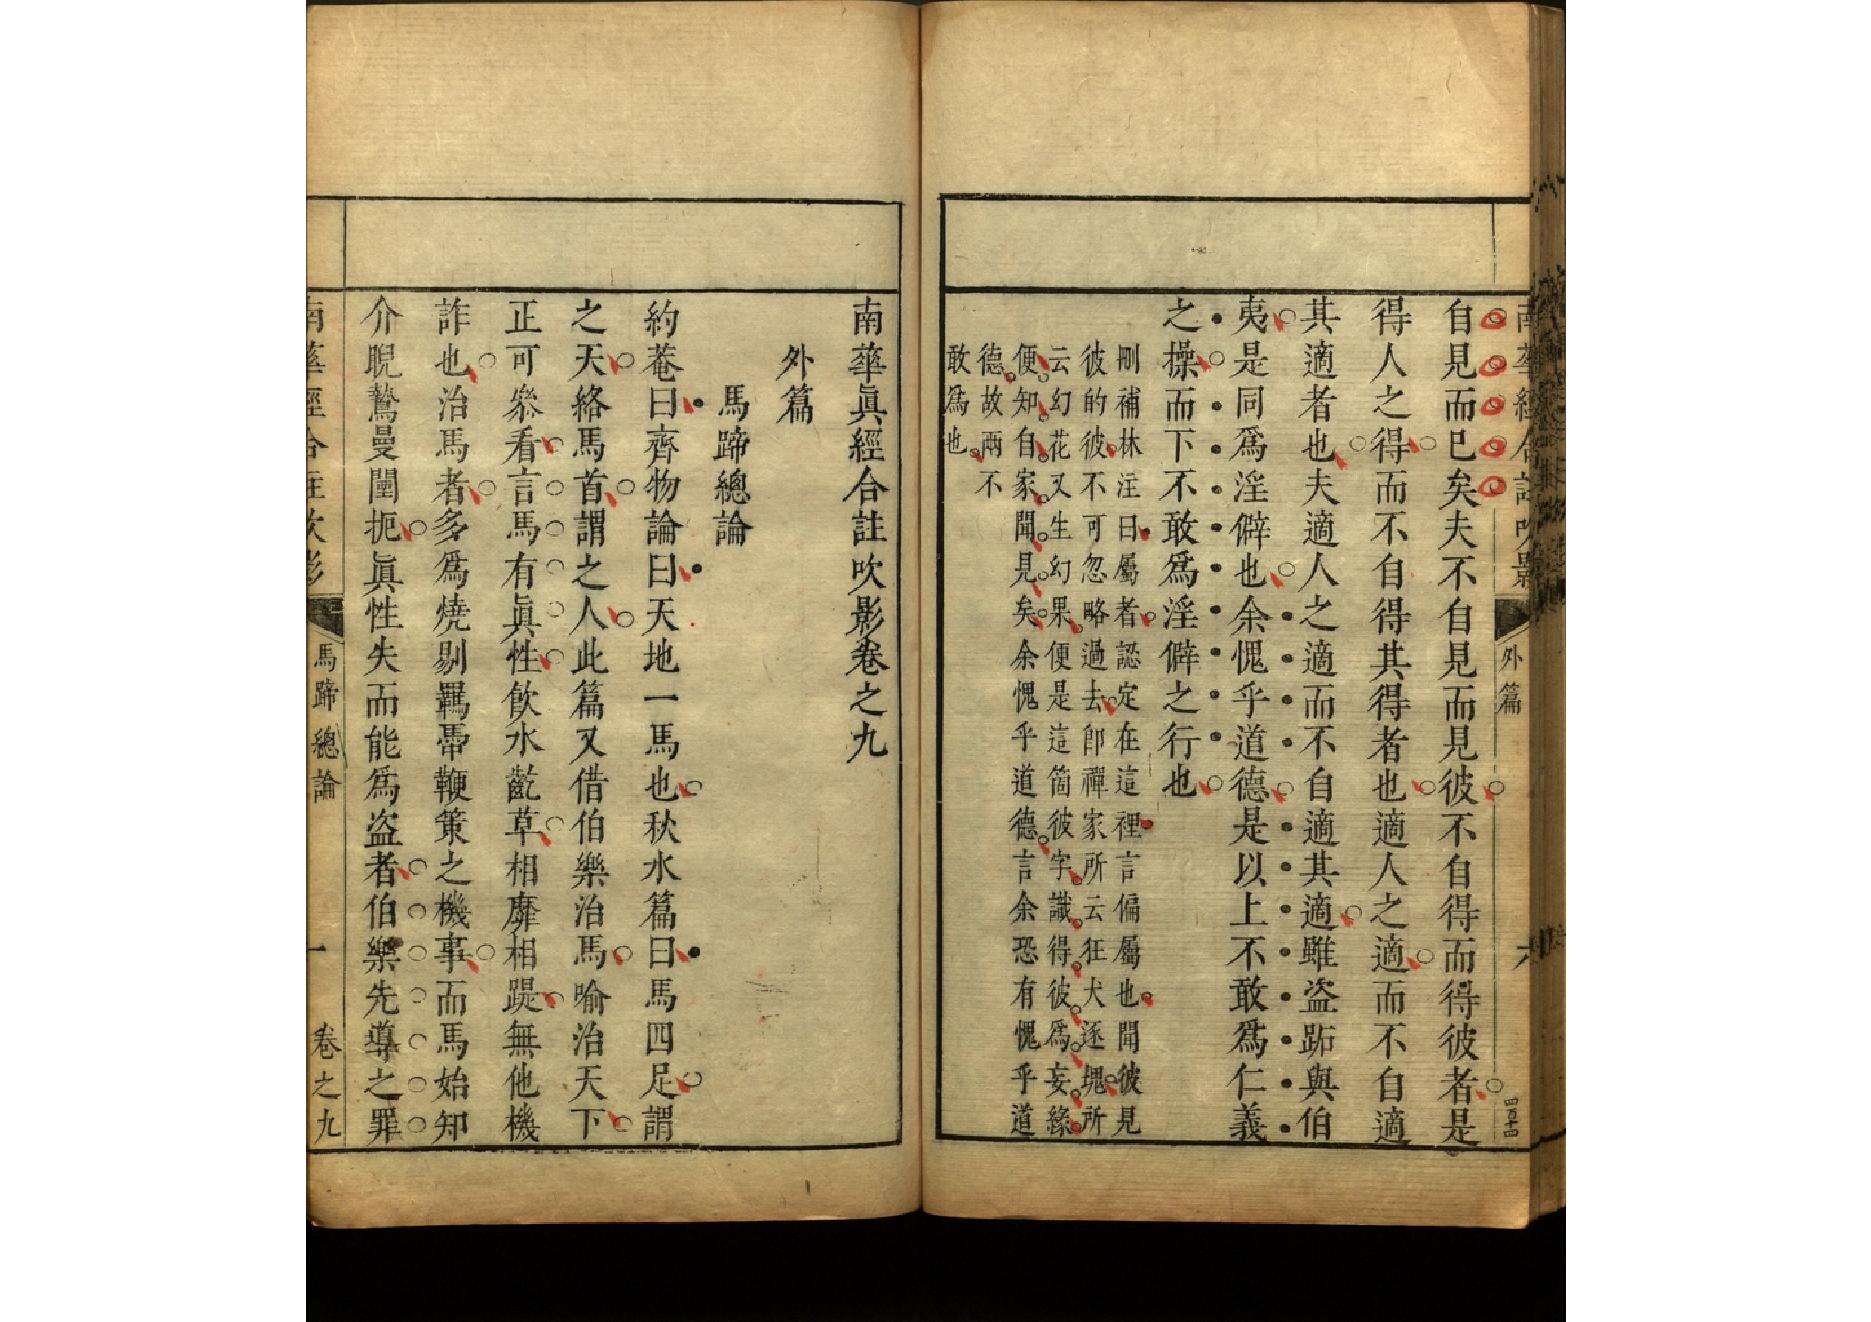 南華經合註吹影
外篇
六
四百十四
自見而已矣夫不自見而見彼不自得而得彼者是
得人之得而不自得其得者也適人之適而不自適
其適者也夫適人之適而不自適其適雖盜跖與伯
夷是同爲淫僻也余愧乎道德是以上不敢爲仁義
之操而下不敢爲淫僻之行也
刪補林注曰屬者認定在這裡言偏屬也聞彼見
彼的彼不可忽略過去卽禪家所云狂犬逐塊所
云幻花又生幻果便是這箇彼字識得彼爲妄緣
便知自家聞見矣余愧乎道德言余恐有愧乎道
德故兩不
敢爲也
南華眞經合註吹影卷之九
外篇
馬蹄總論
約菴曰齊物論曰天地一馬也秋水篇曰馬四足謂
之天絡馬首謂之人此篇又借伯樂治馬喻治天下
正可叅看言馬有眞性飮水齕草相靡相踶無他機
詐也治馬者多爲燒剔羈馽鞭策之機事而馬始知
介睨驁曼闉扼眞性失而能爲盜者伯樂先導之罪
南華經合註吹影
馬蹄總論
一
卷之九